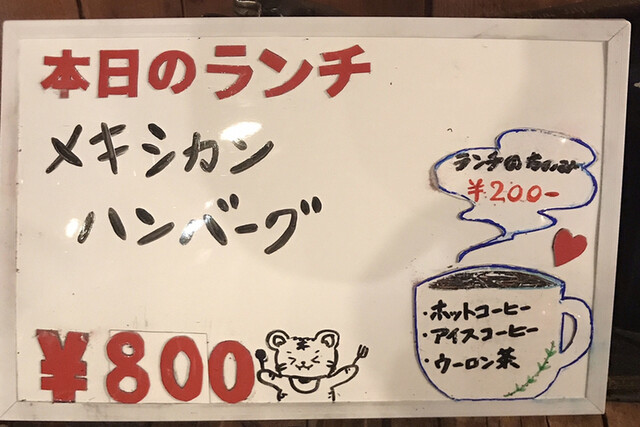 本日のランチ
メキシカン
ハンバーグ
¥800
ランチのちょい
¥200-
・ホットコーヒー
・アイスコーヒー
・ウーロン茶